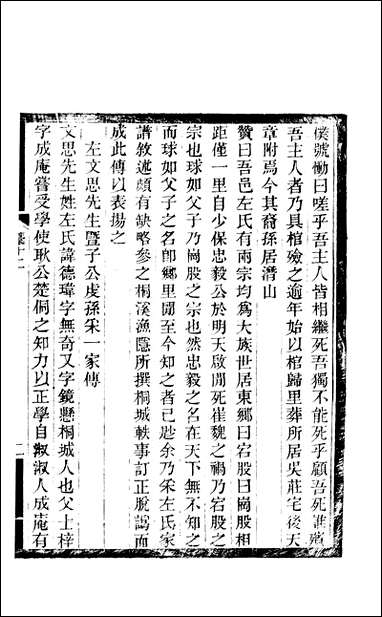 僕號慟曰嗟乎吾主人皆相繼死吾獨不能死乎顧吾死誰殯
吾主人者乃具棺殮之逾年始以棺歸里葬所居吳莊宅後天
章附焉今其裔孫居潛山
贊曰吾邑左氏有兩宗均爲大族世居東鄉曰宕股曰崗股相
距僅一里自少保忠毅公於明天啟閒死崔魏之禍乃宕股之
宗也球如父子乃崗股之宗也然忠毅之名在天下無不知之
而球如父子之名卽鄉里閒至今知者已尠余乃采左氏家
譜敘述頗有缺略參之桐溪漁隱所撰桐城軼事訂正脫譌而
成此傳以表揚之
左文思先生暨子公虔孫采一家傳
文思先生姓左氏諱德瑋字無奇又字鏡懸桐城人也父士梓
字成庵嘗受學使耿公楚侗之知力以正學自淑淑人成庵有
卷十二
二